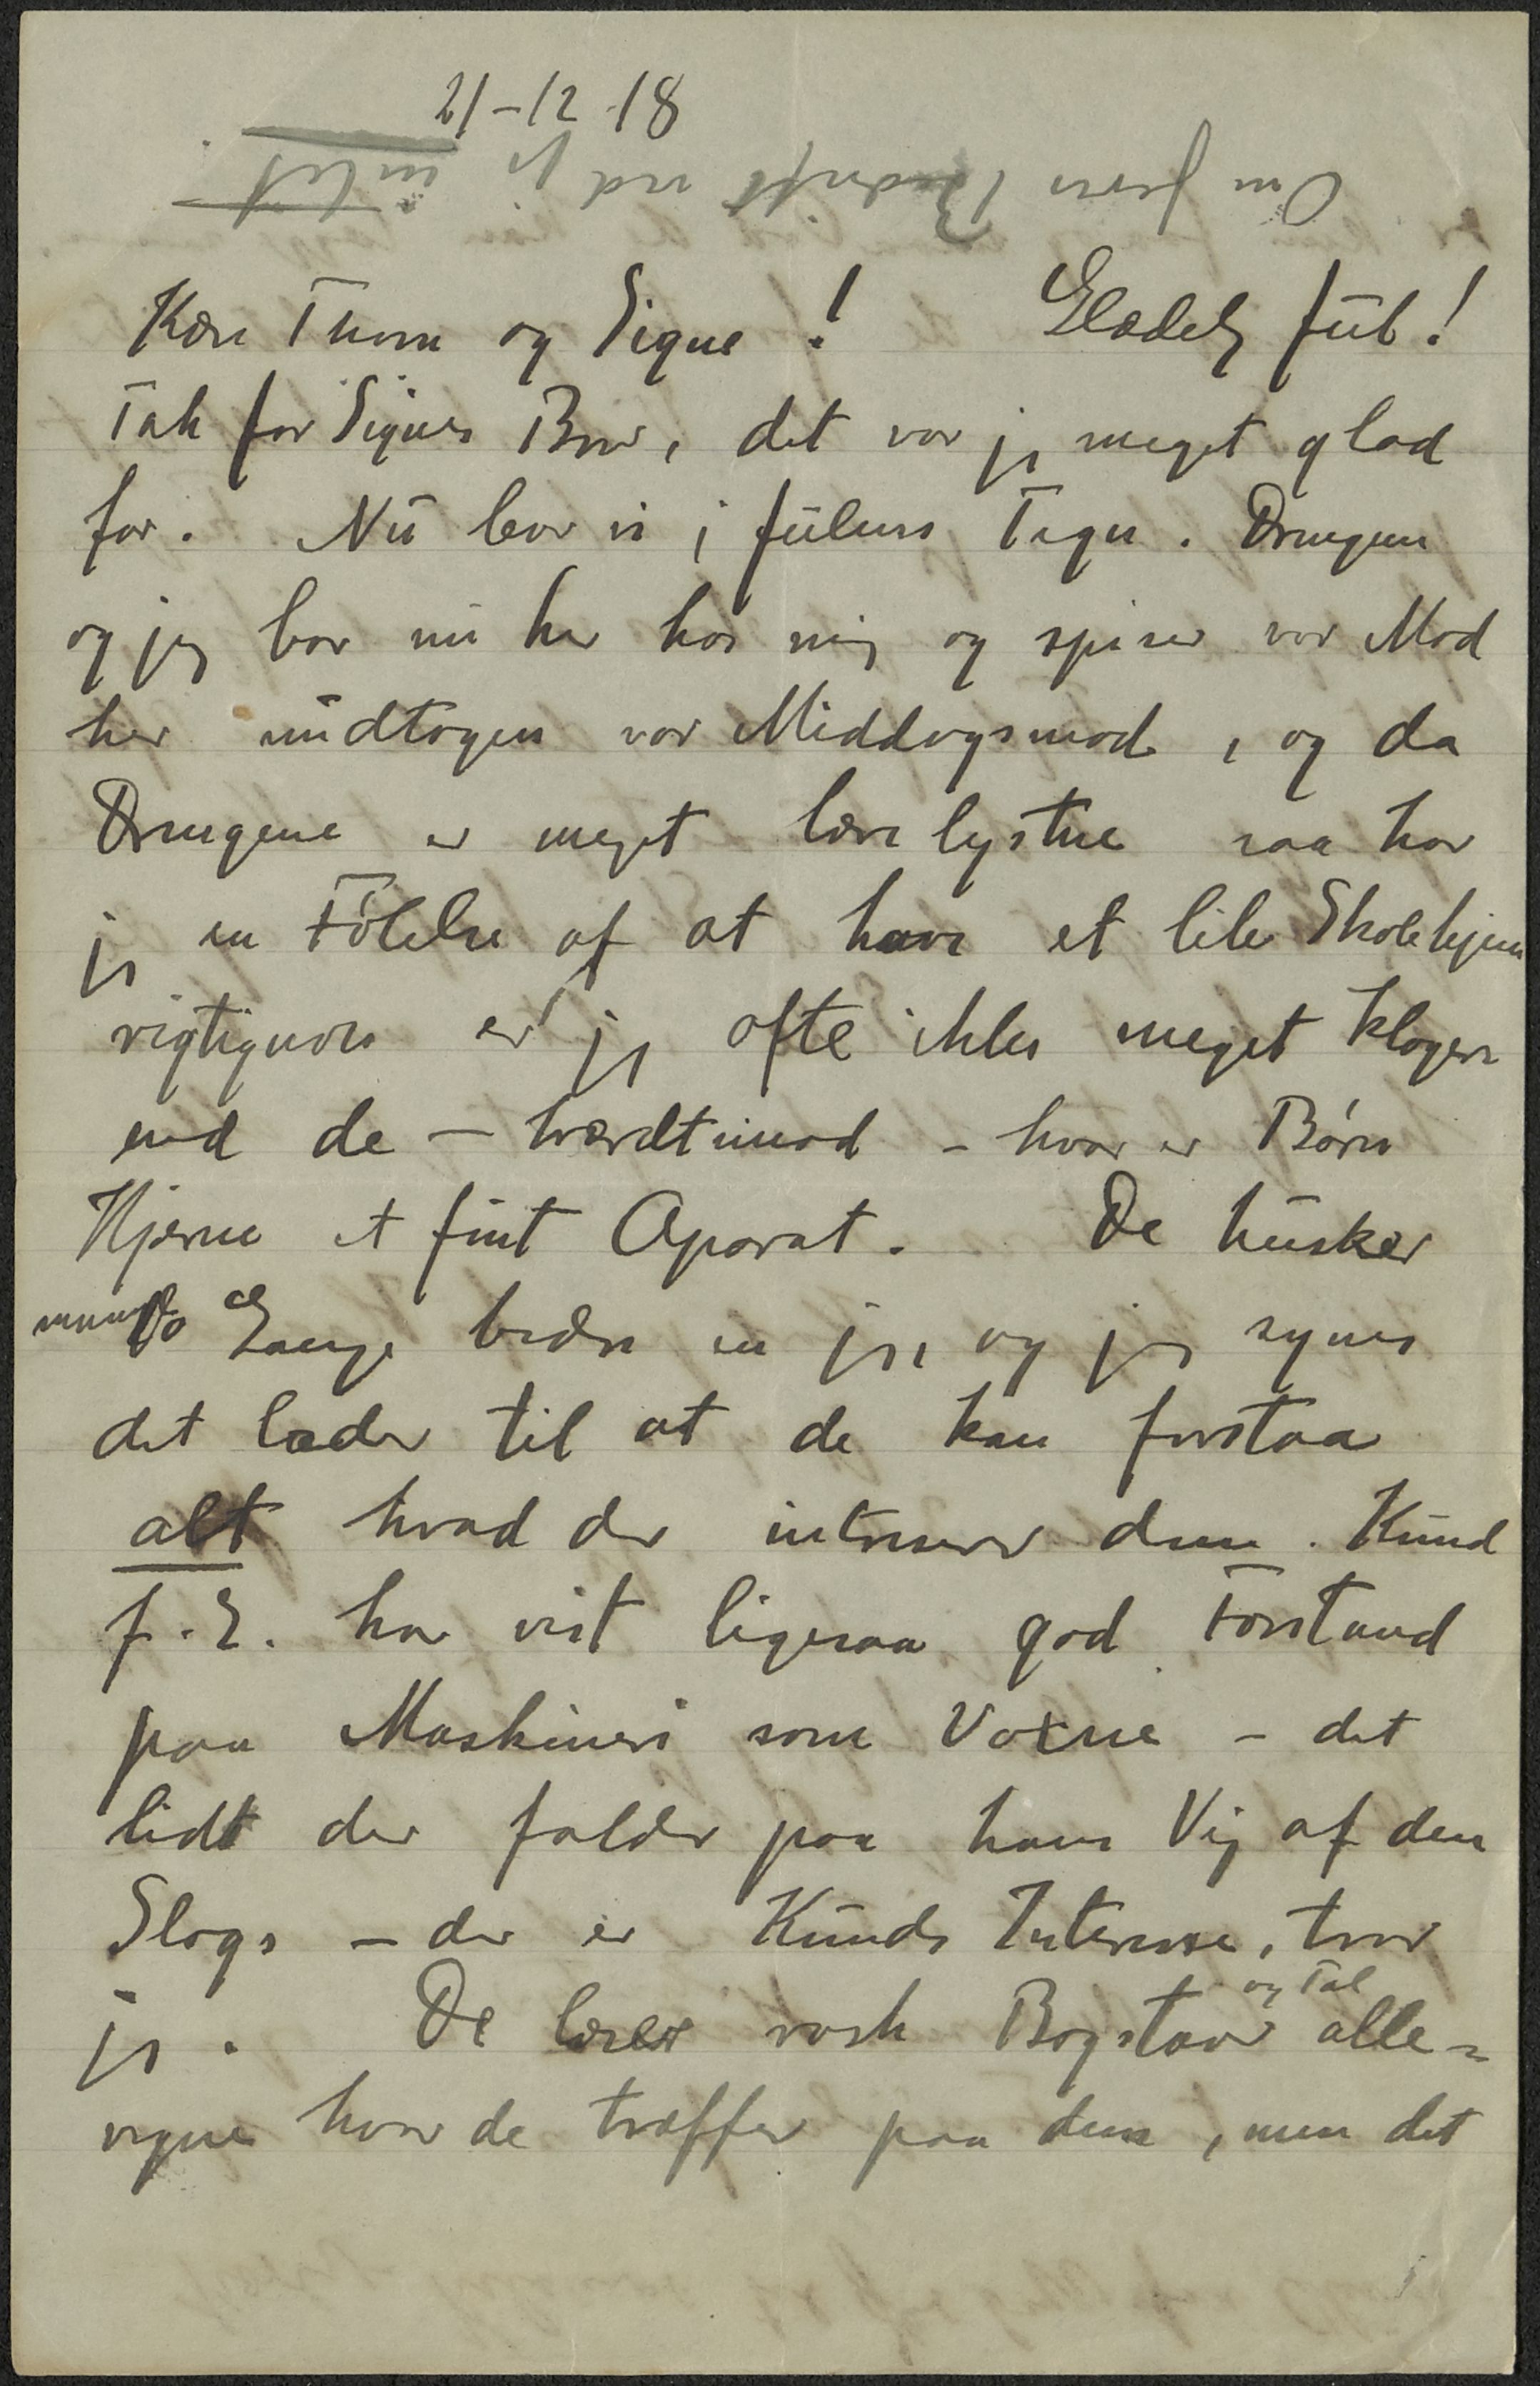 21-12 18
Om jeres Bedrift ved jeg intet
Kære Thom og Signe! Glædelig Jul!
Tak for Signes Brev, det var jeg meget glad
for. Nu lever vi i Julens Tegn. Drengene
og jeg bor nu her hos mig og spiser vor Mad
her undtagen vor Middagsmad, og da
Drengene er meget lærelystne saa har
jeg en Følelse af at have et lile Skolehjem
rigtignok er jeg ofte ikke meget klogere
end de – tværdtimod – hvor er Børns
Hjerne et fint Aparat. De husker
mange Gange bedre en jeg, og jeg synes
det lader til at de kan forstaa
alt hvad der interesserer dem. Knud
f. E. har vist ligesaa god Forstand
paa Maskineri som Voxne – det
lidt der falder paa hans Vej af den
Slags – der er Knuds Interesse, tror
jeg. De lærer rask Bogstaver og Tal alle-
vegne hvor de træffer paa dem, men det